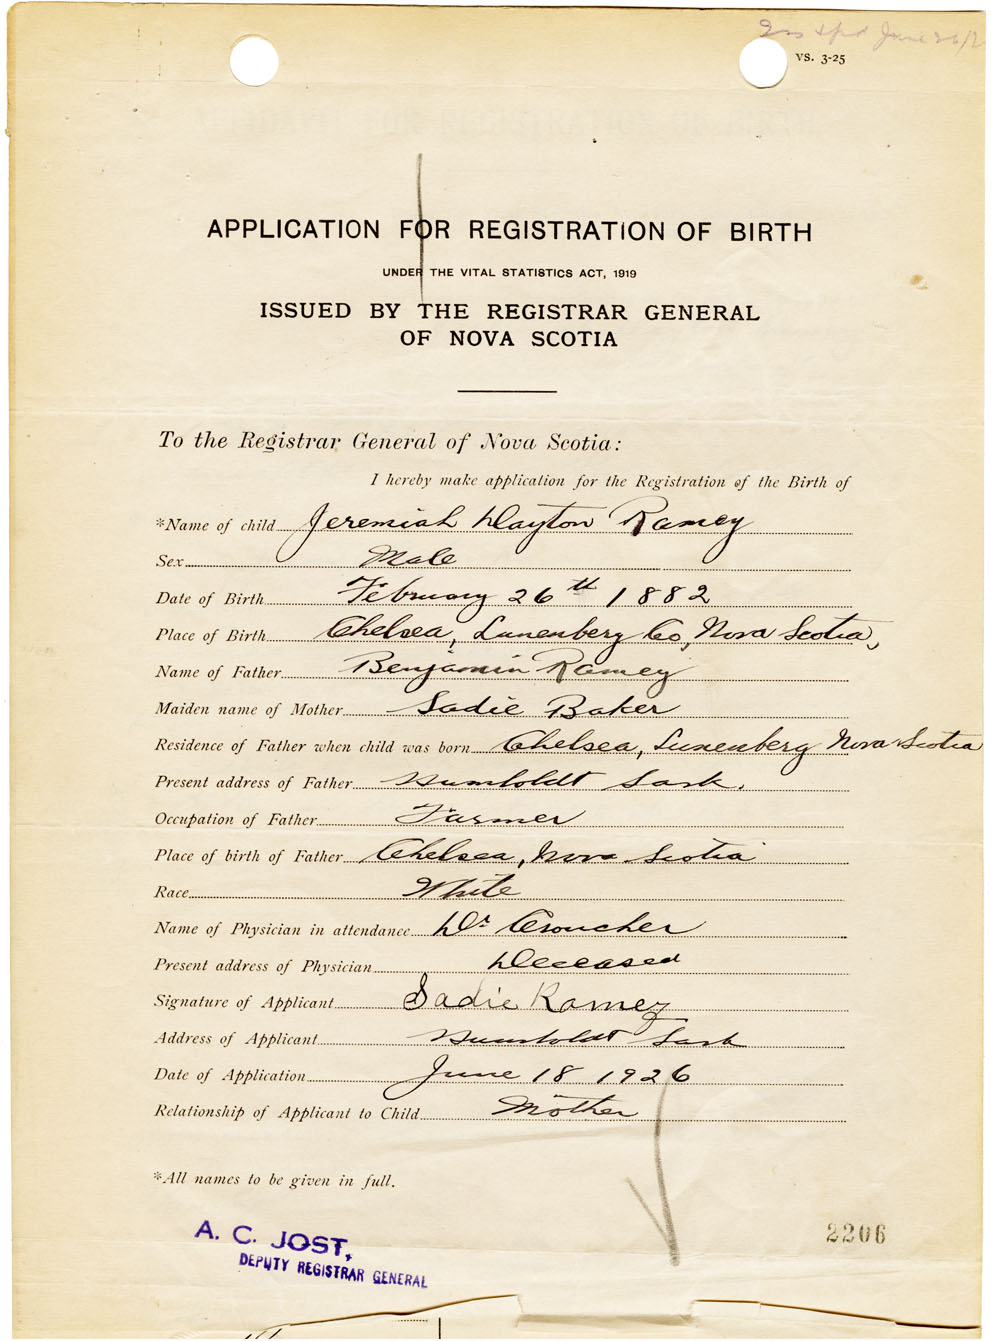 June 26/2
VS. 3-25
APPLICATION FOR REGISTRATION OF BIRTH
UNDER THE VITAL STATISTICS ACT, 1919
ISSUED BY THE REGISTRAR GENERAL
OF NOVA SCOTIA
To the Registrar General of Nova Scotia:
I hereby make application for the Registration of the Birth of
*Name of child Jeremiah Dayton Ramey
Sex Male
Date of Birth February 26th 1882
Place of Birth Chelsea, Lunenberg Co, Nova Scotia,
Name of Father Benjamin Ramey
Maiden name of Mother Sadie Baker
Residence of Father when child was born Chelsea, Lunenberg Nova Scotia
Present address of Father Humboldt Sask.
Occupation of Father Farmer
Place of birth of Father Chelsea, Nova Scotia
Race White
Name of Physician in attendance Dr Croucher
Present address of Physician Deceased
Signature of Applicant Sadie Ramey
Address of Applicant Humboldt Sask
Date of Application June 18 1926
Relationship of Applicant to Child Mother
*All names to be given in full.
A. C. JOST,
DEPUTY REGISTRAR GENERAL
2206